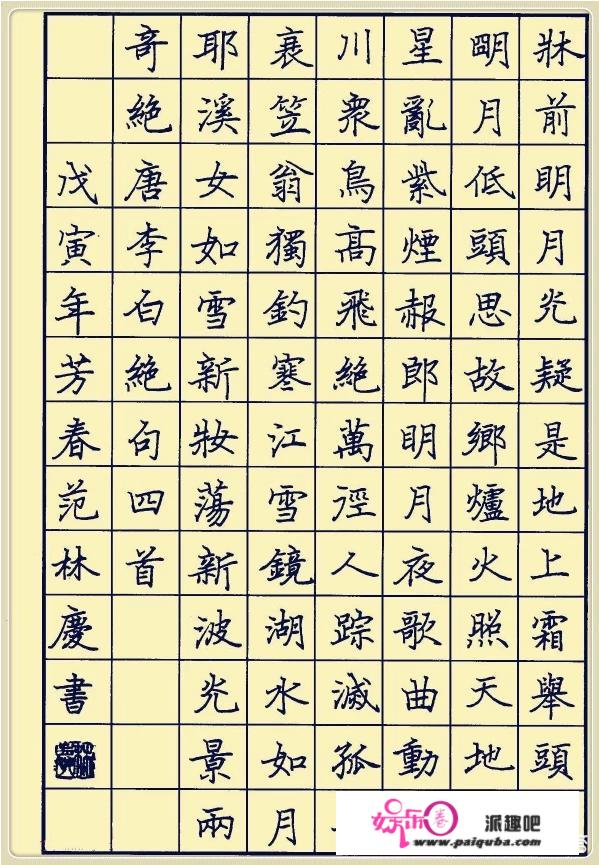 牀前明月光疑是地上霜舉頭
朙月低頭思故鄉爐火照天地
星亂紫煙赧郎明月夜歌曲動
川衆鳥髙飛絕萬徑人踪滅孤
衰笠翁獨釣寒江雪鏡湖水如月
耶溪女如雪新妝蕩新波光景兩
奇絕唐李白絕句四首
戊寅年芳春范林慶書
娱乐卷 派趣吧
www.paiquba.com